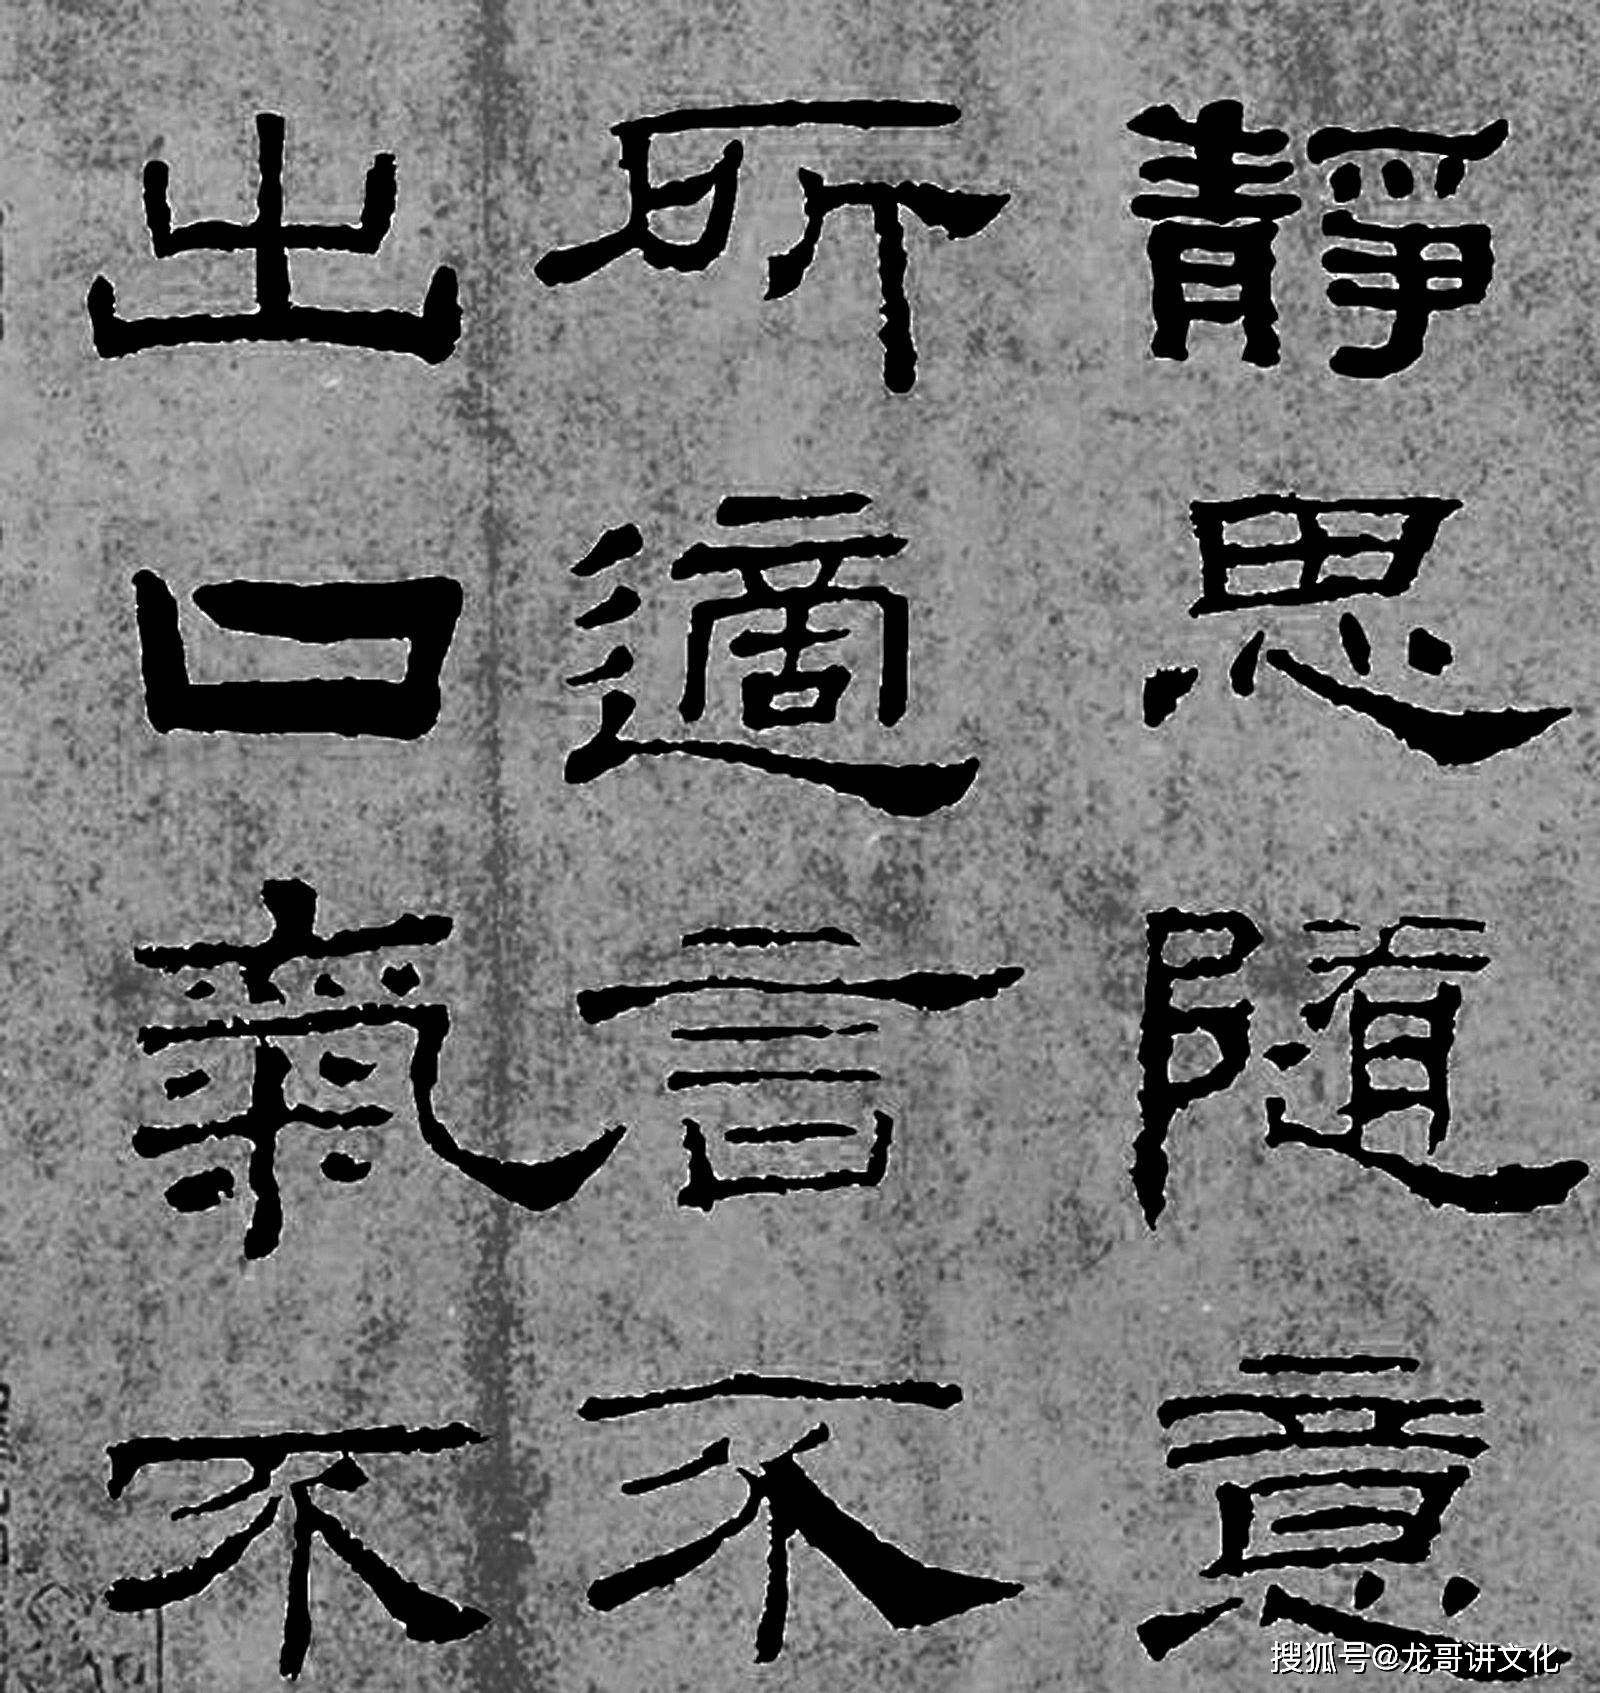 靜思隨意
所適言不
出口氣不
搜狐号@龙哥讲文化